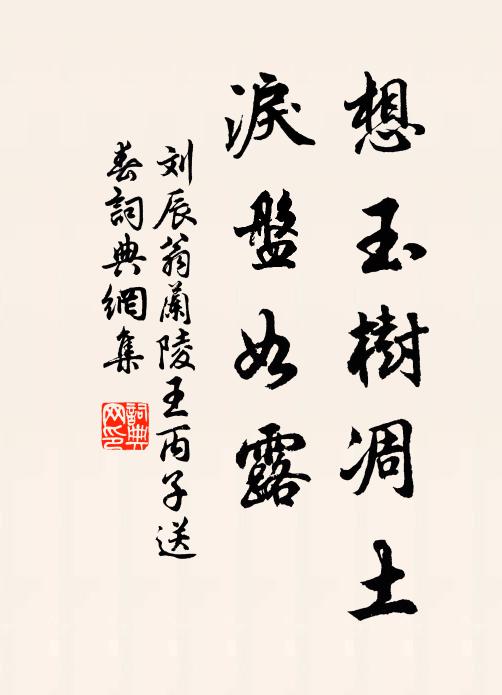 想玉樹凋土
淚盤如露
刘辰翁蘭陵王丙子送
春詞典網集
詞典
网印